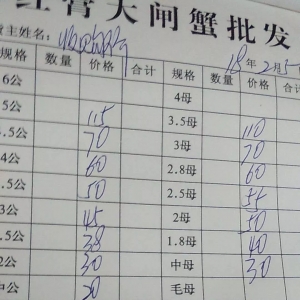 经营大闸蟹批发
主姓名:
18年2月5
规格 数量 价格 合计 规格 数量 价格 合计
6公 4母
5公 115 3.5母 110
.5公 70 3母 70
4公 60 2.8母 60
.5公 50 2.5母 55
3公 45 2母 50
.5公 38 1.8母 40
2公 30 中母 30
中公 20 毛母